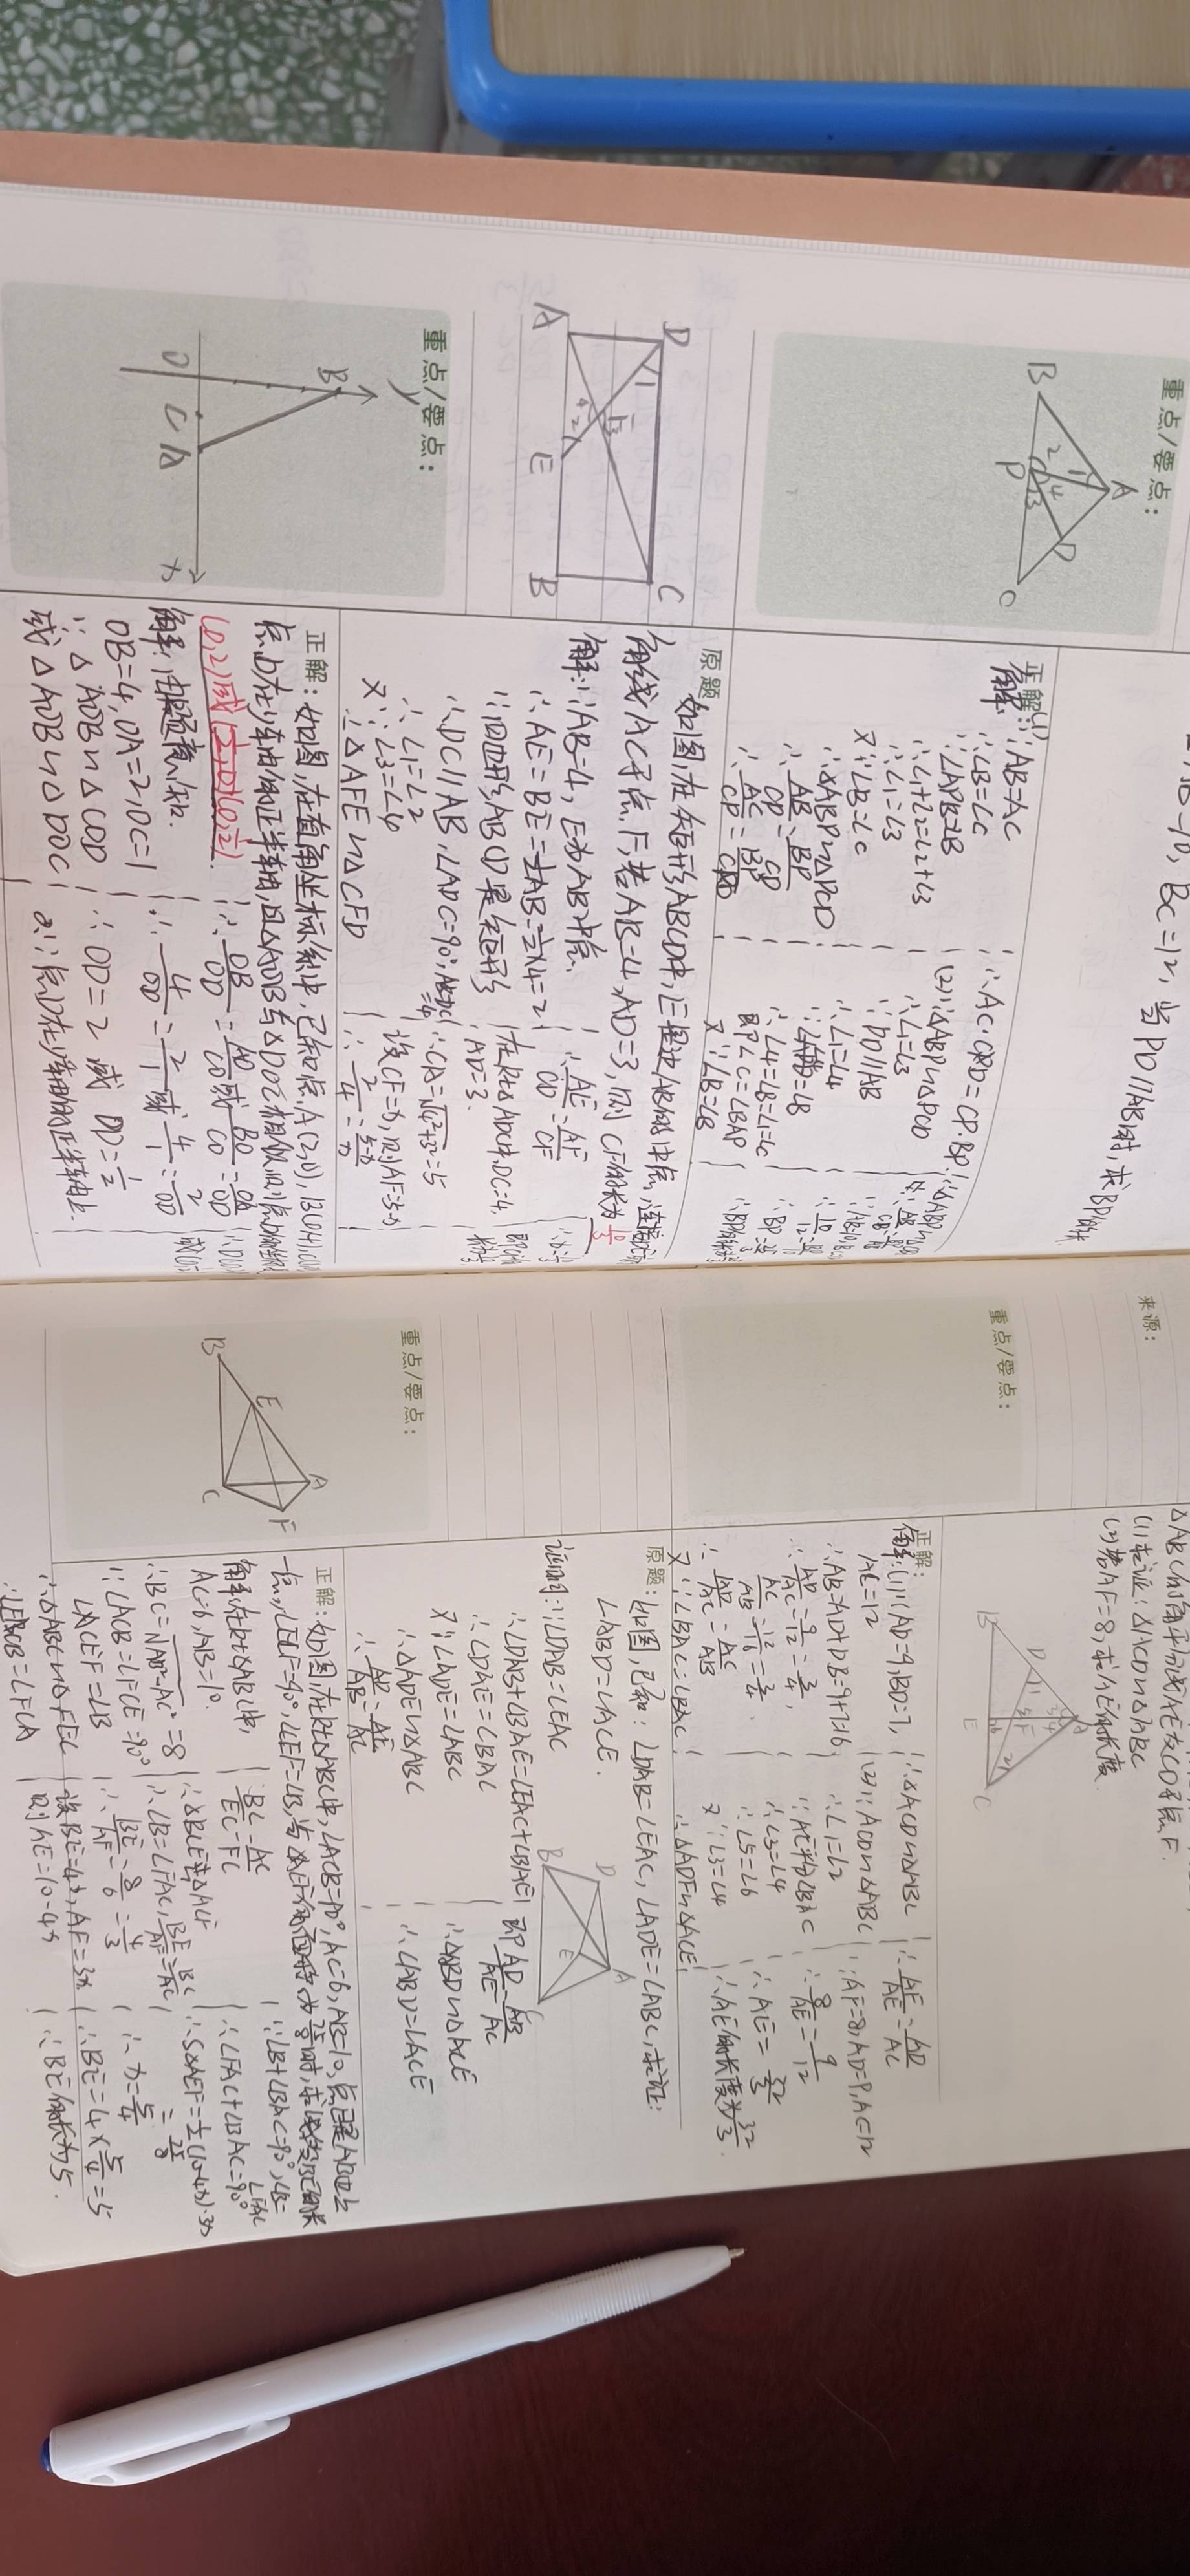 AB=10, BC=12, 当PD//AB时, 求BP的长
重点/要点:
A
B
P
D
C
1
2
3
4
正解:
解:(1)∵AB=AC
∴∠B=∠C
∵∠APD=∠B
∴∠1+∠2=∠2+∠3
∴∠1=∠3
又∵∠B=∠C
∴△ABP∽△PCD
∴AC·CD=CP·BP
(2)∵△ABP∽△PCD
∴∠1=∠3
∵PD//AB
∴∠1=∠4
∴∠4=∠B=∠1=∠C
即∠C=∠BAP
又∵∠B=∠B
原题
如图,在矩形ABCD中,E是边AB的中点,连接DE交对
角线AC于点F,若AB=4,AD=3,则CF的长为10/3
D
C
A
E
B
解:∵AB=4,E为AB中点
∴AE=BE=1/2AB=1/2×4=2
∵四边形ABCD是矩形
∴DC//AB,∠ADC=90°,AB=DC=4
∴∠1=∠2
又∵∠3=∠4
∴△AFE∽△CFD
∴AE/CD=AF/CF
在Rt△ADC中,DC=4,
AD=3
∴CA=√4²+3²=5
设CF=x,则AF=5-x
∴2/4=5-x/x
重点/要点:
y
B
O
C
A
x
正解:如图,在直角坐标系中,已知点A(2,0),B(0,4),
点D在y轴的正半轴,且△AOB与△DOC相似,则点D的坐标
(0,2)或(0,1/2).
解:由题意知.
OB=4,OA=2,OC=1
∵△AOB∽△COD
或△AOB∽△DOC
∴4/OD=2/1或4/1=2/OD
∴OD=2或OD=1/2
∵点D在y轴的正半轴上.
来源:
△ABC的角平分线AE交CD于点F.
(1)求证:△ACD∽△ABC
(2)若AF=8,求AE的长度
重点/要点:
B
D
A
F
E
C
正解:
解:(1)∵AD=9,BD=7,
AC=12
∴AB=AD+DB=9+7=16
∴AD/AC=9/12=3/4,
AC/AB=12/16=3/4
∴AD/AC=AC/AB
又∵∠BAC=∠BAC
∴△ACD∽△ABC
(2)∵△ACD∽△ABC
∴∠1=∠2
∵AE平分∠BAC
∴∠3=∠4
∴∠5=∠6
又∵∠3=∠4
∴△ADF∽△ACE
∴AF/AE=AD/AC
∵AF=8,AD=9,AC=12
∴8/AE=9/12
∴AE=32/3
∴AE的长度为32/3.
原题:如图,已知:∠DAB=∠EAC,∠ADE=∠ABC,求证:
∠ABD=∠ACE.
D
A
B
E
C
证明:∵∠DAB=∠EAC
∴∠DAB+∠BAE=∠EAC+∠BAE
∴∠DAE=∠BAC
又∵∠ADE=∠ABC
∴△ADE∽△ABC
∴AD/AB=AE/AC
即AD/AE=AB/AC
∴△ABD∽△ACE
∴∠ABD=∠ACE
重点/要点:
B
E
A
C
F
正解:如图,在Rt△ABC中,∠ACB=90°,AC=6,AB=10,点E是AB边上
一点,∠ECF=90°,∠CEF=∠B,当△AEF的面积为75/8时,求线段BE的长
解:在Rt△ABC中,
AC=6,AB=10
∴BC=√AB²-AC²=8
∵∠ACB=∠FCE=90°
∠CEF=∠B
∴△ABC∽△FEC
∴∠ECB=∠FCA
BC/EC=AC/FC
∴△BCE∽△ACF
∴∠B=∠FAC,BE/AF=BC/AC
∴BE/AF=8/6=4/3
设BE=4x,AF=3x
则AE=10-4x
∵∠B+∠BAC=90°,∠B=∠FAC
∴∠FAC+∠BAC=90°
∴S△AEF=1/2(10-4x)·3x
=75/8
∴x=5/4
∴BE=4×5/4=5
∴BE的长为5.